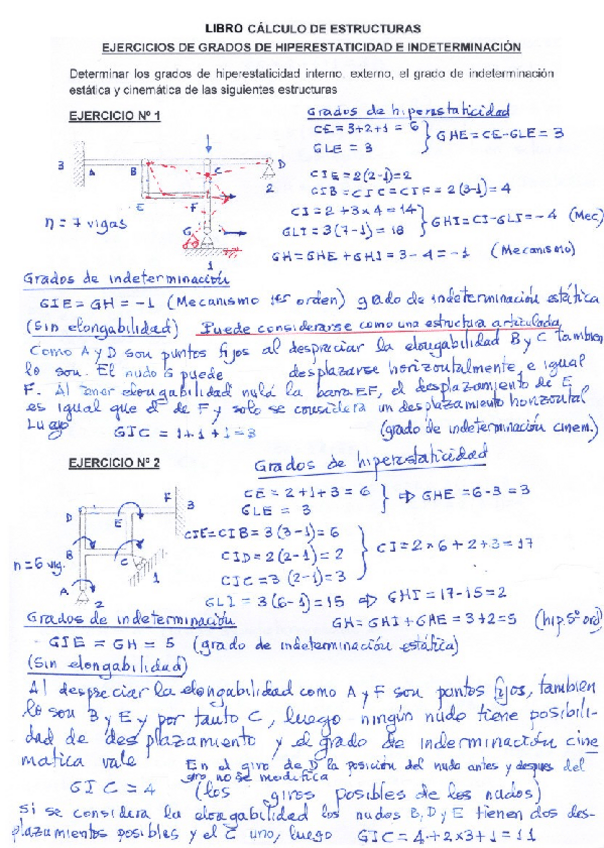 LIBRO CÁLCULO DE ESTRUCTURAS
EJERCICIOS DE GRADOS DE HIPERESTATICIDAD E INDETERMINACIÓN
Determinar los grados de hiperestaticidad interno, externo, el grado de indeterminación
estática y cinemática de las siguientes estructuras
EJERCICIO Nº 1
Grados de hiperestaticidad
CE = 3+2+1 = 6
GLE = 3
GHE = CE-GLE = 3
3 A B C D
2
E F
G
1
n = 7 vigas
CIE = 2(2-1) = 2
CIB = CIC = CIF = 2(3-1) = 4
CI = 2 + 3x4 = 14
GLI = 3(7-1) = 18
GHI = CI-GLI = -4 (Mec)
GH = GHE + GHI = 3-4 = -1 (Mecanismo)
Grados de indeterminación
GIE = GH = -1 (Mecanismo 1er orden) grado de indeterminación estática
(Sin elongabilidad) Puede considerarse como una estructura articulada
Como A y D son puntos fijos al despreciar la elongabilidad B y C también
lo son. El nudo G puede desplazarse horizontalmente, e igual
F. Al tener elongabilidad nula la barra EF, el desplazamiento de E
es igual que el de F y solo se considera un desplazamiento horizontal
Luego GIC = 1+1+1 = 3 (grado de indeterminación cinem.)
EJERCICIO Nº 2
Grados de hiperestaticidad
CE = 2+1+3 = 6
GLE = 3
⇒ GHE = 6-3 = 3
F 3
D E
B C
1
A
2
n = 6 vig.
CIE = CIB = 3(3-1) = 6
CID = 2(2-1) = 2
CIC = 3(2-1) = 3
CI = 2x6+2+3 = 17
GLI = 3(6-1) = 15 ⇒ GHI = 17-15 = 2
Grados de indeterminación
GH = GHI + GHE = 3+2 = 5 (hip. 5º ord)
- GIE = GH = 5 (grado de indeterminación estática)
(Sin elongabilidad)
Al despreciar la elongabilidad como A y F son puntos fijos, también
lo son B y E y por tanto C, luego ningún nudo tiene posibili-
dad de desplazamiento y el grado de inderminación cine
matica vale
En el giro de D la posición del nudo antes y despues del
giro, no se modifica
GIC = 4 (los giros posibles de los nudos)
Si se considera la elongabilidad los nudos B, D y E tienen dos des-
plazamientos posibles y el C uno, luego GIC = 4+2x3+1 = 11